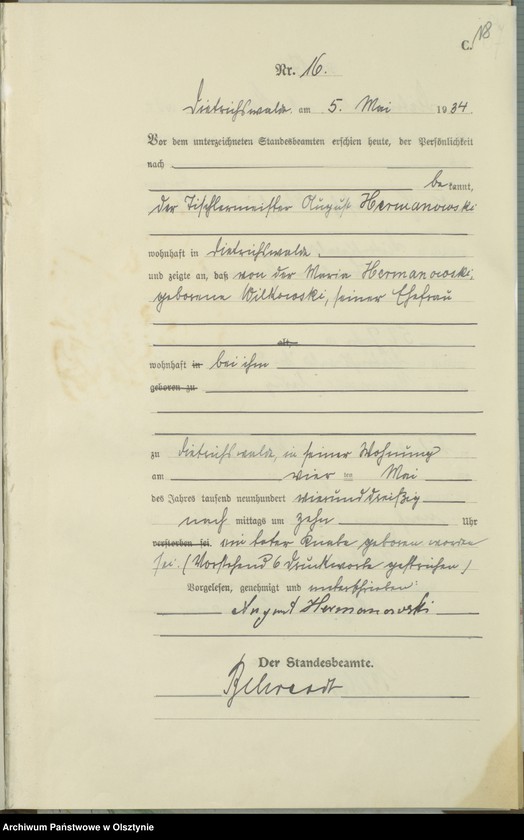 18
C.
Nr. 16.
Dietrichswalde am 5. Mai 1934
Vor dem unterzeichneten Standesbeamten erschien heute, der Persönlichkeit
nach
bekannt,
der Tischlermeister August Hermanowski
wohnhaft in Dietrichswalde,
und zeigte an, daß von der Maria Hermanowski,
geborene Wilkowski, seiner Ehefrau
alt,
wohnhaft in bei ihm
geboren zu
zu Dietrichswalde, in seiner Wohnung
am vier ten Mai
des Jahres tausend neunhundert vierunddreißig
nach mittags um zehn Uhr
verstorben sei. ein toter Knabe geboren worden
sei. (Vorstehend 6 Druckworte gestrichen)
Vorgelesen, genehmigt und unterschrieben:
August Hermanowski
Der Standesbeamte.
Behrendt
Archiwum Państwowe w Olsztynie